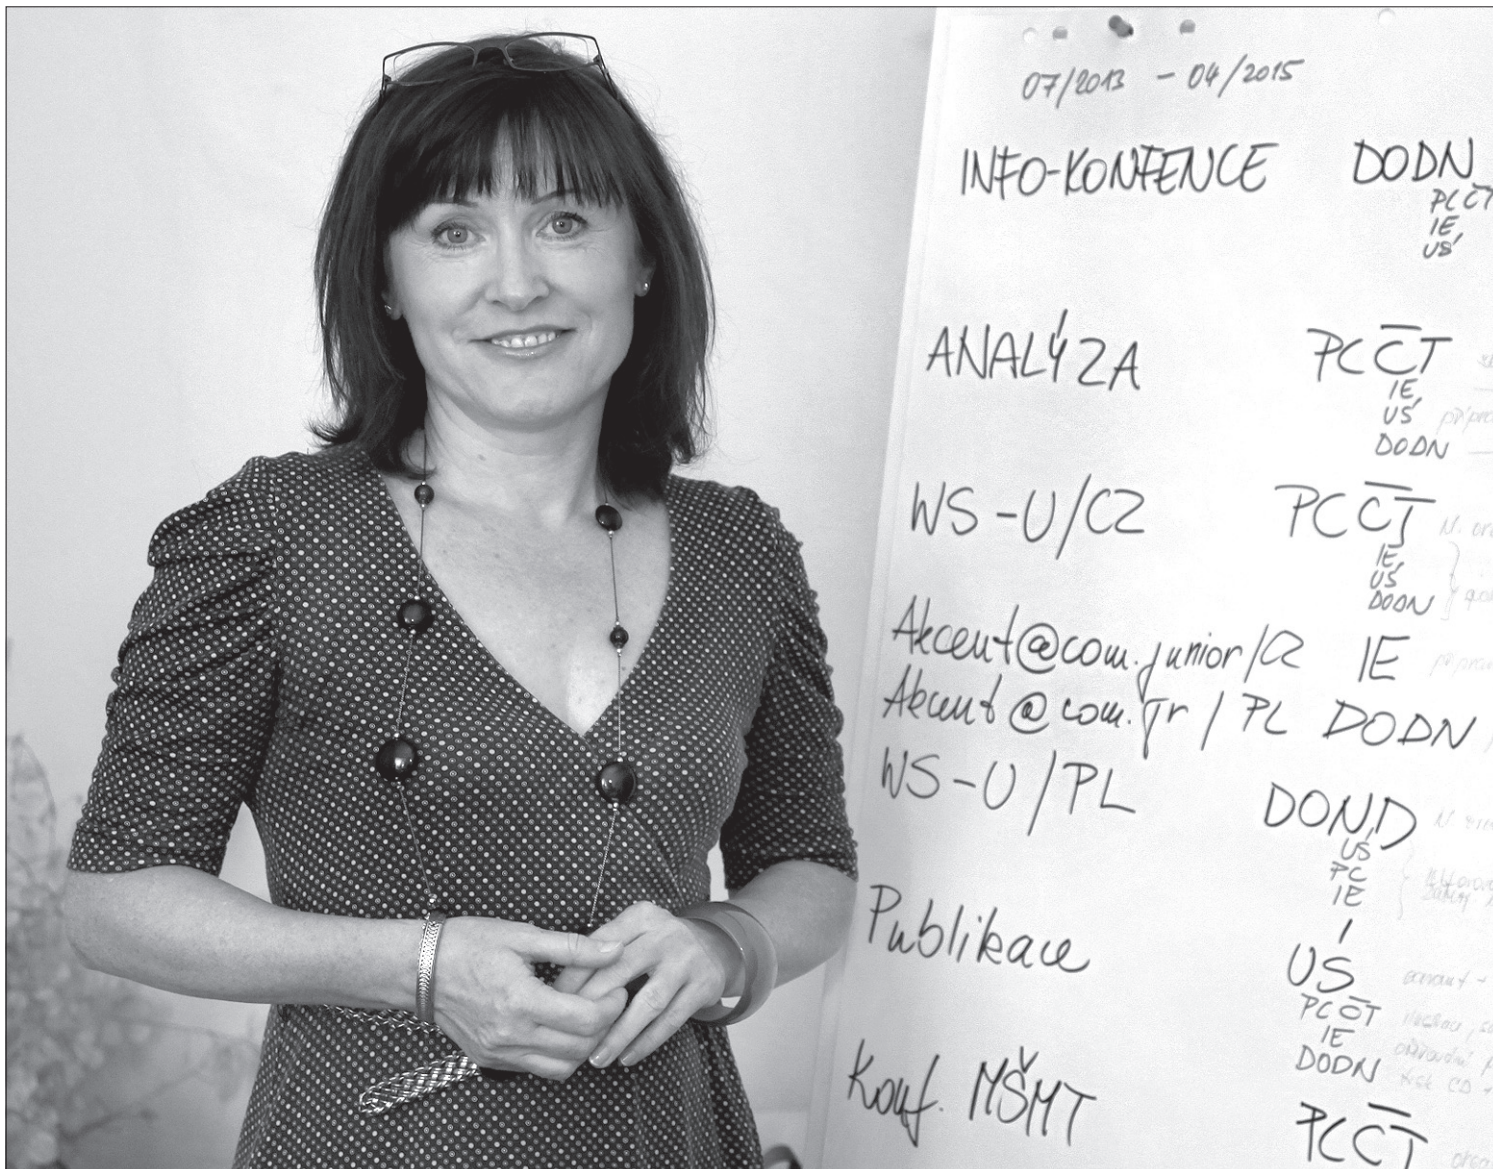 07/2013 - 04/2015
INFO-KONFENCE DODN
PCČT
IE,
UŚ,
ANALÝZA PCČT
IE,
UŚ
DODN
WS-U/CZ PCČT
IE,
UŚ
DODN
Akcent@com.junior/CZ IE
Akcent@com.Jr/PL DODN
WS-U/PL DOND
UŚ
PC
IE
Publikace UŚ
PCČT
IE
DODN
Konf. MŠMT PCČT